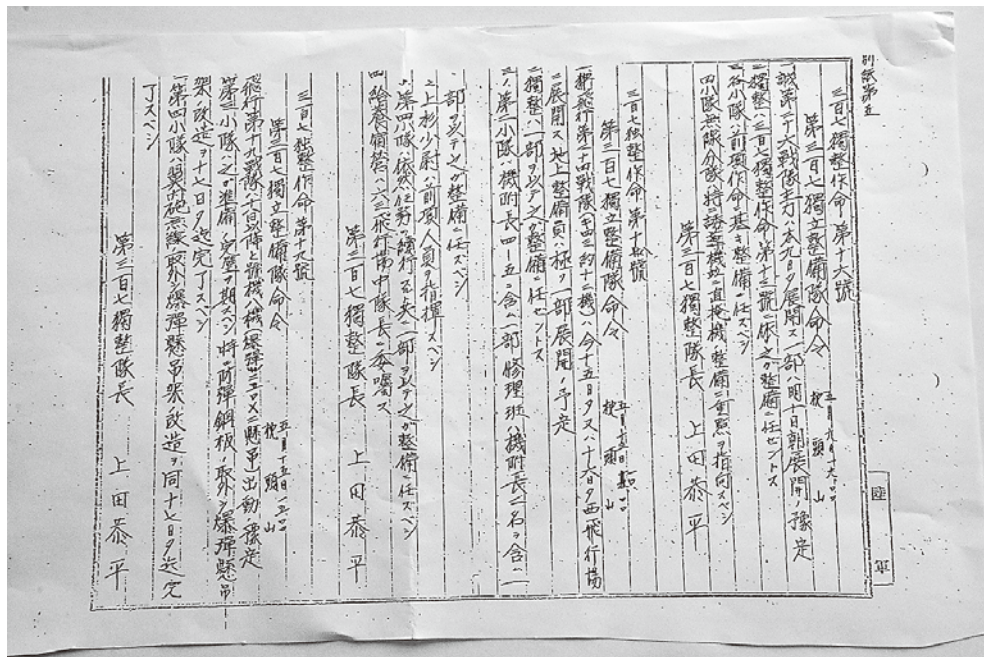 別紙第五
三百七獨整作命第十六號
第三百七獨立整備隊命令
五月九日一六〇〇
枕頭山
一、誠第二十六戰隊主力ハ本九日夕展開ス一部ハ明十日朝展開豫定
二、獨整ハ三百七獨整作命第十三號ニ依リ之ガ整備ニ任セントス
三、各小隊ハ前項作命ニ基キ整備ニ任スベシ
四小隊無隊分隊ハ特ニ誘導機竝ニ直掩機ノ整備ニ重點ヲ指向スベシ
第三百七獨整隊長 上田恭平
三百七独整作命第十號
第三百七獨立整備隊命令
枕頭山
一、飛行第二十四戰隊(キ四三約十二機)ハ今十五日夕又ハ十六日夕西飛行場
ニ展開ス 地上整備員ハ極ク一部展開ノ予定
二、獨整ハ一部ヲ以テ之ガ整備ニ任セントス
三、第二小隊ハ機附長四-五ヲ含ム一部修理班ハ機附長二名ヲ含ム一
部ヲ以テ之ガ整備ニ任スベシ
上杉少尉ハ前項人員ヲ指揮スベシ
第四小隊ハ依然任務ヲ續行シ一部ヲ以テ之ガ整備ニ任スベシ
四、給養宿營ハ六三飛行場中隊長ニ委囑ス
第三百七獨整隊長 上田恭平
三百七独整作命第十九號
第三百七獨立整備隊命令
五月十五日一五〇〇
枕頭山
飛行第十九戰隊ハ十七日以降ト號機八機(爆彈二五〇×二懸吊)出動ノ豫定
第三小隊ハ之ガ準備ノ完璧ヲ期スベシ特ニ防彈鋼板ノ取外シ爆彈懸吊
架ノ改造ヲ十七日夕迄完了スベシ
第四小隊ハ翼内砲無線ノ取外シ爆彈懸吊架改造ヲ同十七日夕迄完
了スベシ
第三百七獨整隊長 上田恭平
陸軍